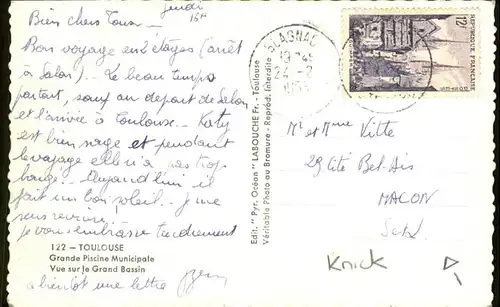 Jeudi
15H
Bien chers Tous –
Bon voyage en 2 étapes (arrêt
à Salon).. Le beau temps
partout, sauf au départ de Salon
et l'arrivée à Toulouse – Katy
est bien sage et pendant
le voyage elle n'a pas trop
bougé – Aujourd'hui il
fait un bon soleil –
Je vous embrasse tendrement
à bientôt une lettre
122 — TOULOUSE
Grande Piscine Municipale
Vue sur le Grand Bassin
Edit. "Pyr. Océan" LABOUCHE Fr. - Toulouse
Véritable Photo au Bromure - Reprod. Interdite
BLAGNAC
12F
REPUBLIQUE FRANÇAISE
Mr et Mme Vitte
29 Cité Bel-Air
MACON
S&L
Knick